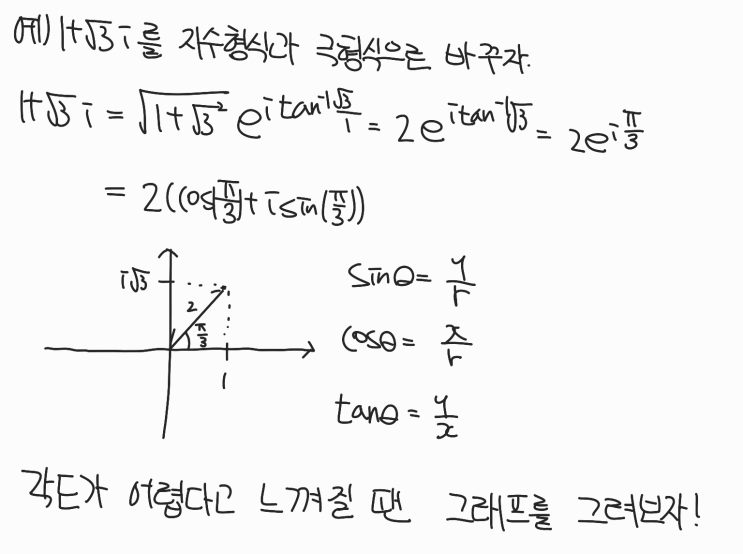 예) 1+√3 i를 지수형식과 극형식으로 바꾸자.
1+√3 i = √(1+√3²) e^(i tan⁻¹ √3/1) = 2e^(i tan⁻¹√3) = 2e^(i π/3)
= 2(cos(π/3)+isin(π/3))
i√3
2
π/3
1
sinθ = y/r
cosθ = x/r
tanθ = y/x
각도가 어렵다고 느껴질 땐 그래프를 그려보자!